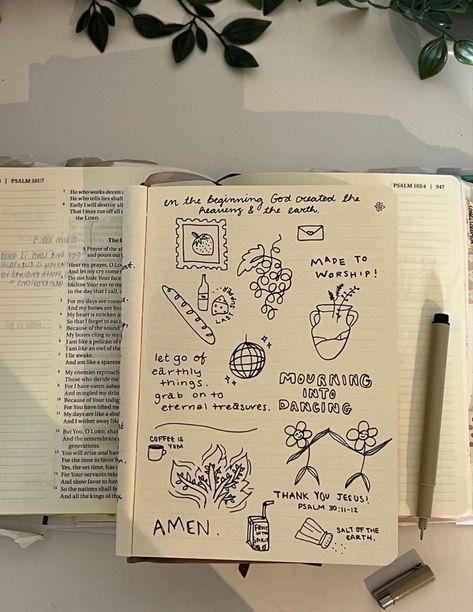 PSALM 101:7
7 He who works decei
He who tells lies sh
8 Early I will destroy al
That I may cut off al
the LORD.
A Prayer of the af
and pours out
Hear my prayer, O L
And let my cry come
Do not hide Your face
Incline Your ear to me
In the day that I call,
3 For my days are
And my bones are
4 My heart is stricken
So that I forget to eat
5 Because of the sound
My bones cling to my
6 I am like a pelican of
I am like an owl of the
7 I lie awake,
And am like a sparrow
8 My enemies reproach
Those who deride me
9 For I have eaten ashes
And mingled my
10 Because of Your indig
For You have lifted
11 My days are like a sha
And I wither away
12 But You, O LORD,
And the remembrance
generations.
13 You will arise and
For the time to favor
Yes, the set time, has
14 For Your servants take
And show favor to her
15 So the nations shall
And all the kings of
PSALM 103:4 | 947
in the beginning God created the
heavens & the earth.
MADE TO
WORSHIP!
let go of
earthly
things.
grab on to
eternal treasures.
MOURNING
INTO
DANCING
COFFEE IS
YUM
THANK YOU JESUS!
PSALM 30:11-12
AMEN.
FRUIT
OF THE
SPIRIT
SALT OF THE
EARTH.